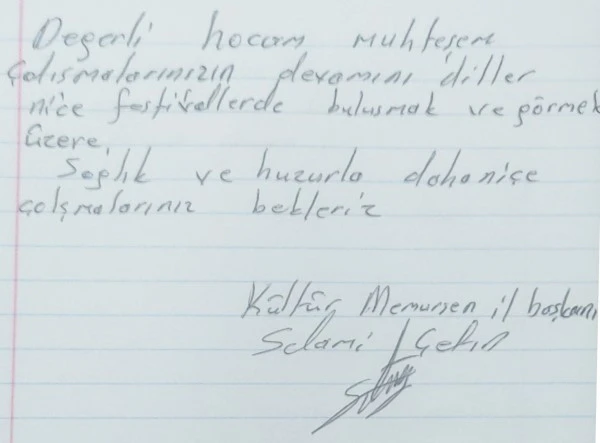 Değerli hocam muhteşem
Çalışmalarınızın devamını diller
nice festivallerde bulusmak ve görmek
üzere.
Sağlık ve huzurla daha niçe
çalşmalarınız bekleriz
Kültür Memursen il başkanı
Selami Çekin